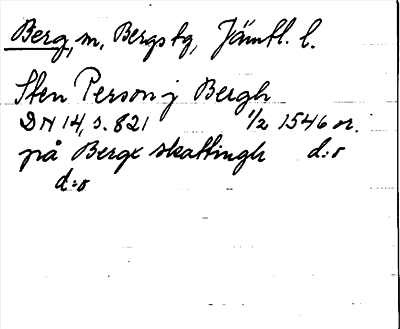 Berg, m, Bergs tg, Jämtl. l.
Sten Person j Bergh
DN 14, s. 821 1/2 1546 or.
på Bergx skattingh d:o
d:o